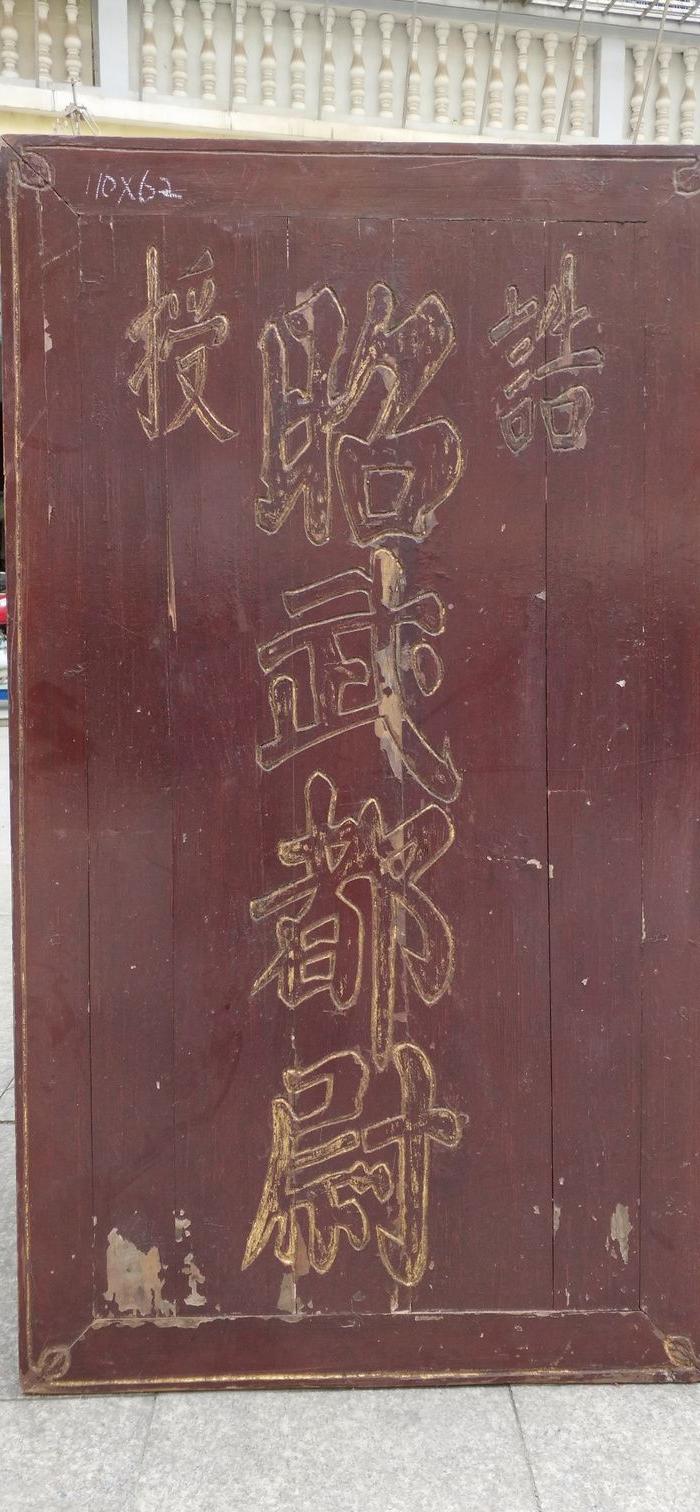 110X62
誥授
昭武都尉